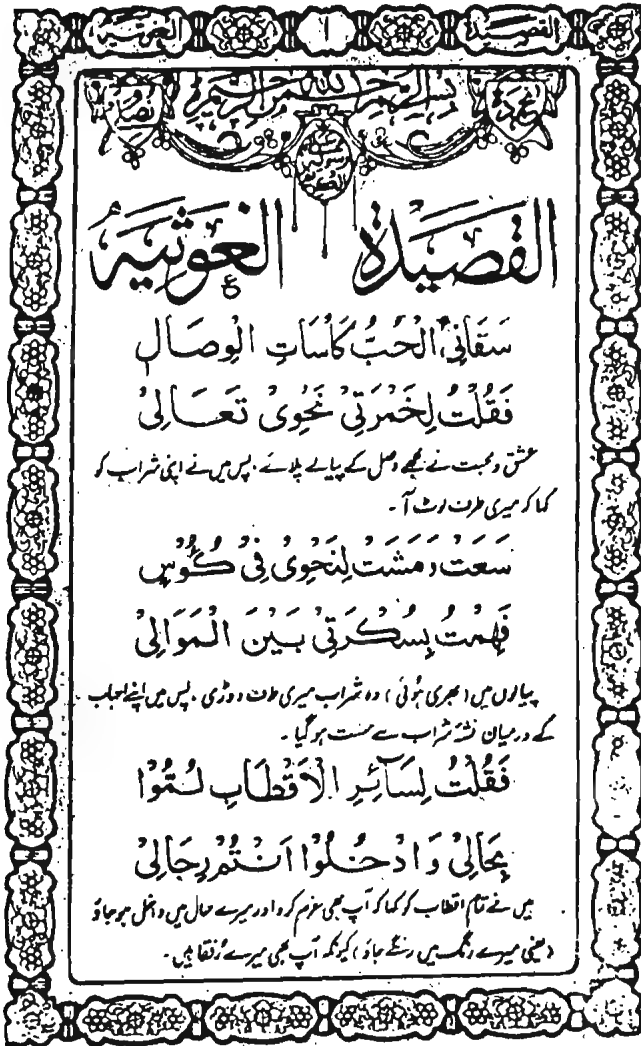 القصيدة ١ الغوثية
بسم الله الرحمن الرحيم
القصيدة الغوثية
سَقَانِي الْحُبُّ كَاْسَاتِ الْوِصَالِ
فَقُلْتُ لِخَمْرَتِيْ نَحْوِيْ تَعَالِيْ
عشق و محبت نے مجھے وصل کے پیالے پلائے ۔ پس میں نے اپنی شراب کو
کہا کہ میری طرف لوٹ آ ۔
سَعَتْ وَمَشَتْ لِنَحْوِيْ فِيْ كُؤُوْسٍ
فَهِمْتُ بِسُكْرَتِيْ بَيْنَ الْمَوَالِيْ
پیالوں میں ( بھری ہوئی ) وہ شراب میری طرف دوڑی ۔ پس میں اپنے احباب
کے درمیان نشۂ شراب سے مست ہو گیا ۔
فَقُلْتُ لِسَآئِرِ الْاَقْطَابِ لُمُّوْا
بِحَالِيْ وَادْخُلُوْا اَنْتُمْ رِجَالِيْ
میں نے تمام اقطاب کو کہا کہ آپ بھی عزم کرو اور میرے حال میں داخل ہو جاؤ
( یعنی میرے رنگ میں رنگے جاؤ ) کیونکہ آپ بھی میرے رفقا ہیں ۔